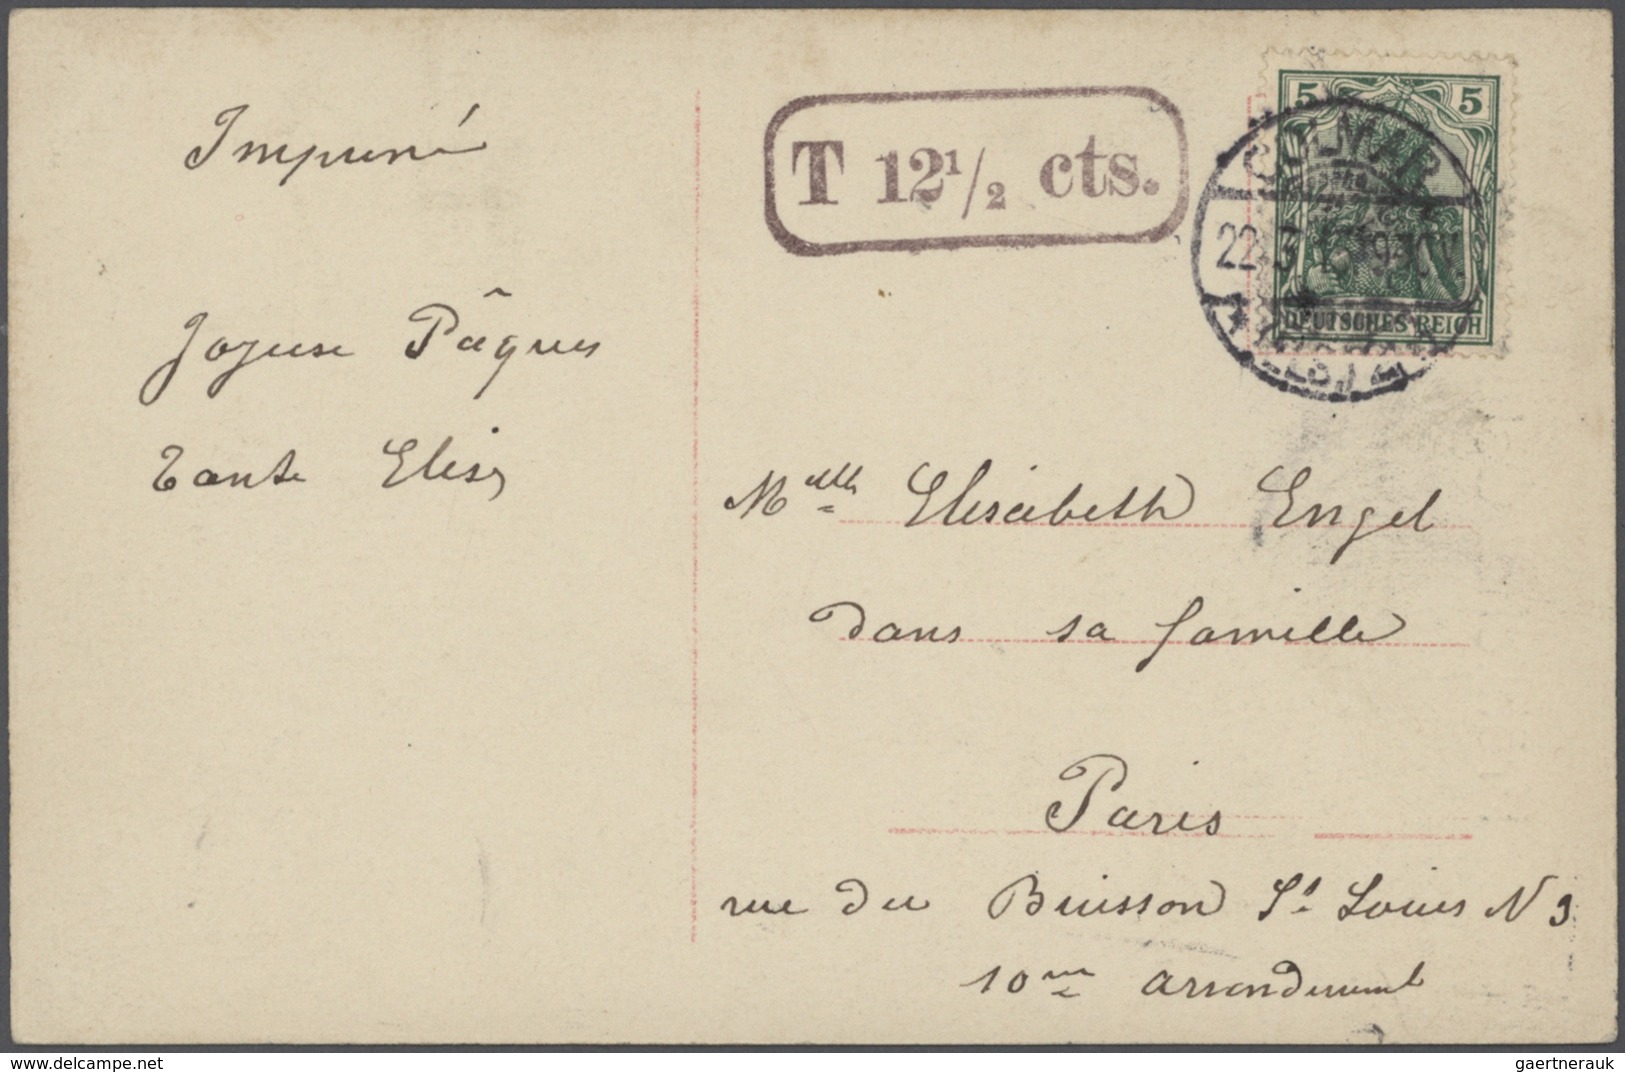 Imprimé
Joyeuse Pâques
Tante Elisa
T 12 1/2 cts.
5 5
DEUTSCHES REICH
COLMAR
22.3.
(ELS.)
Mlle Elisabeth Engel
dans sa famille
Paris
rue du Buisson St Louis N 9
10me arrondissement
delcampe.net
gaertnerauk